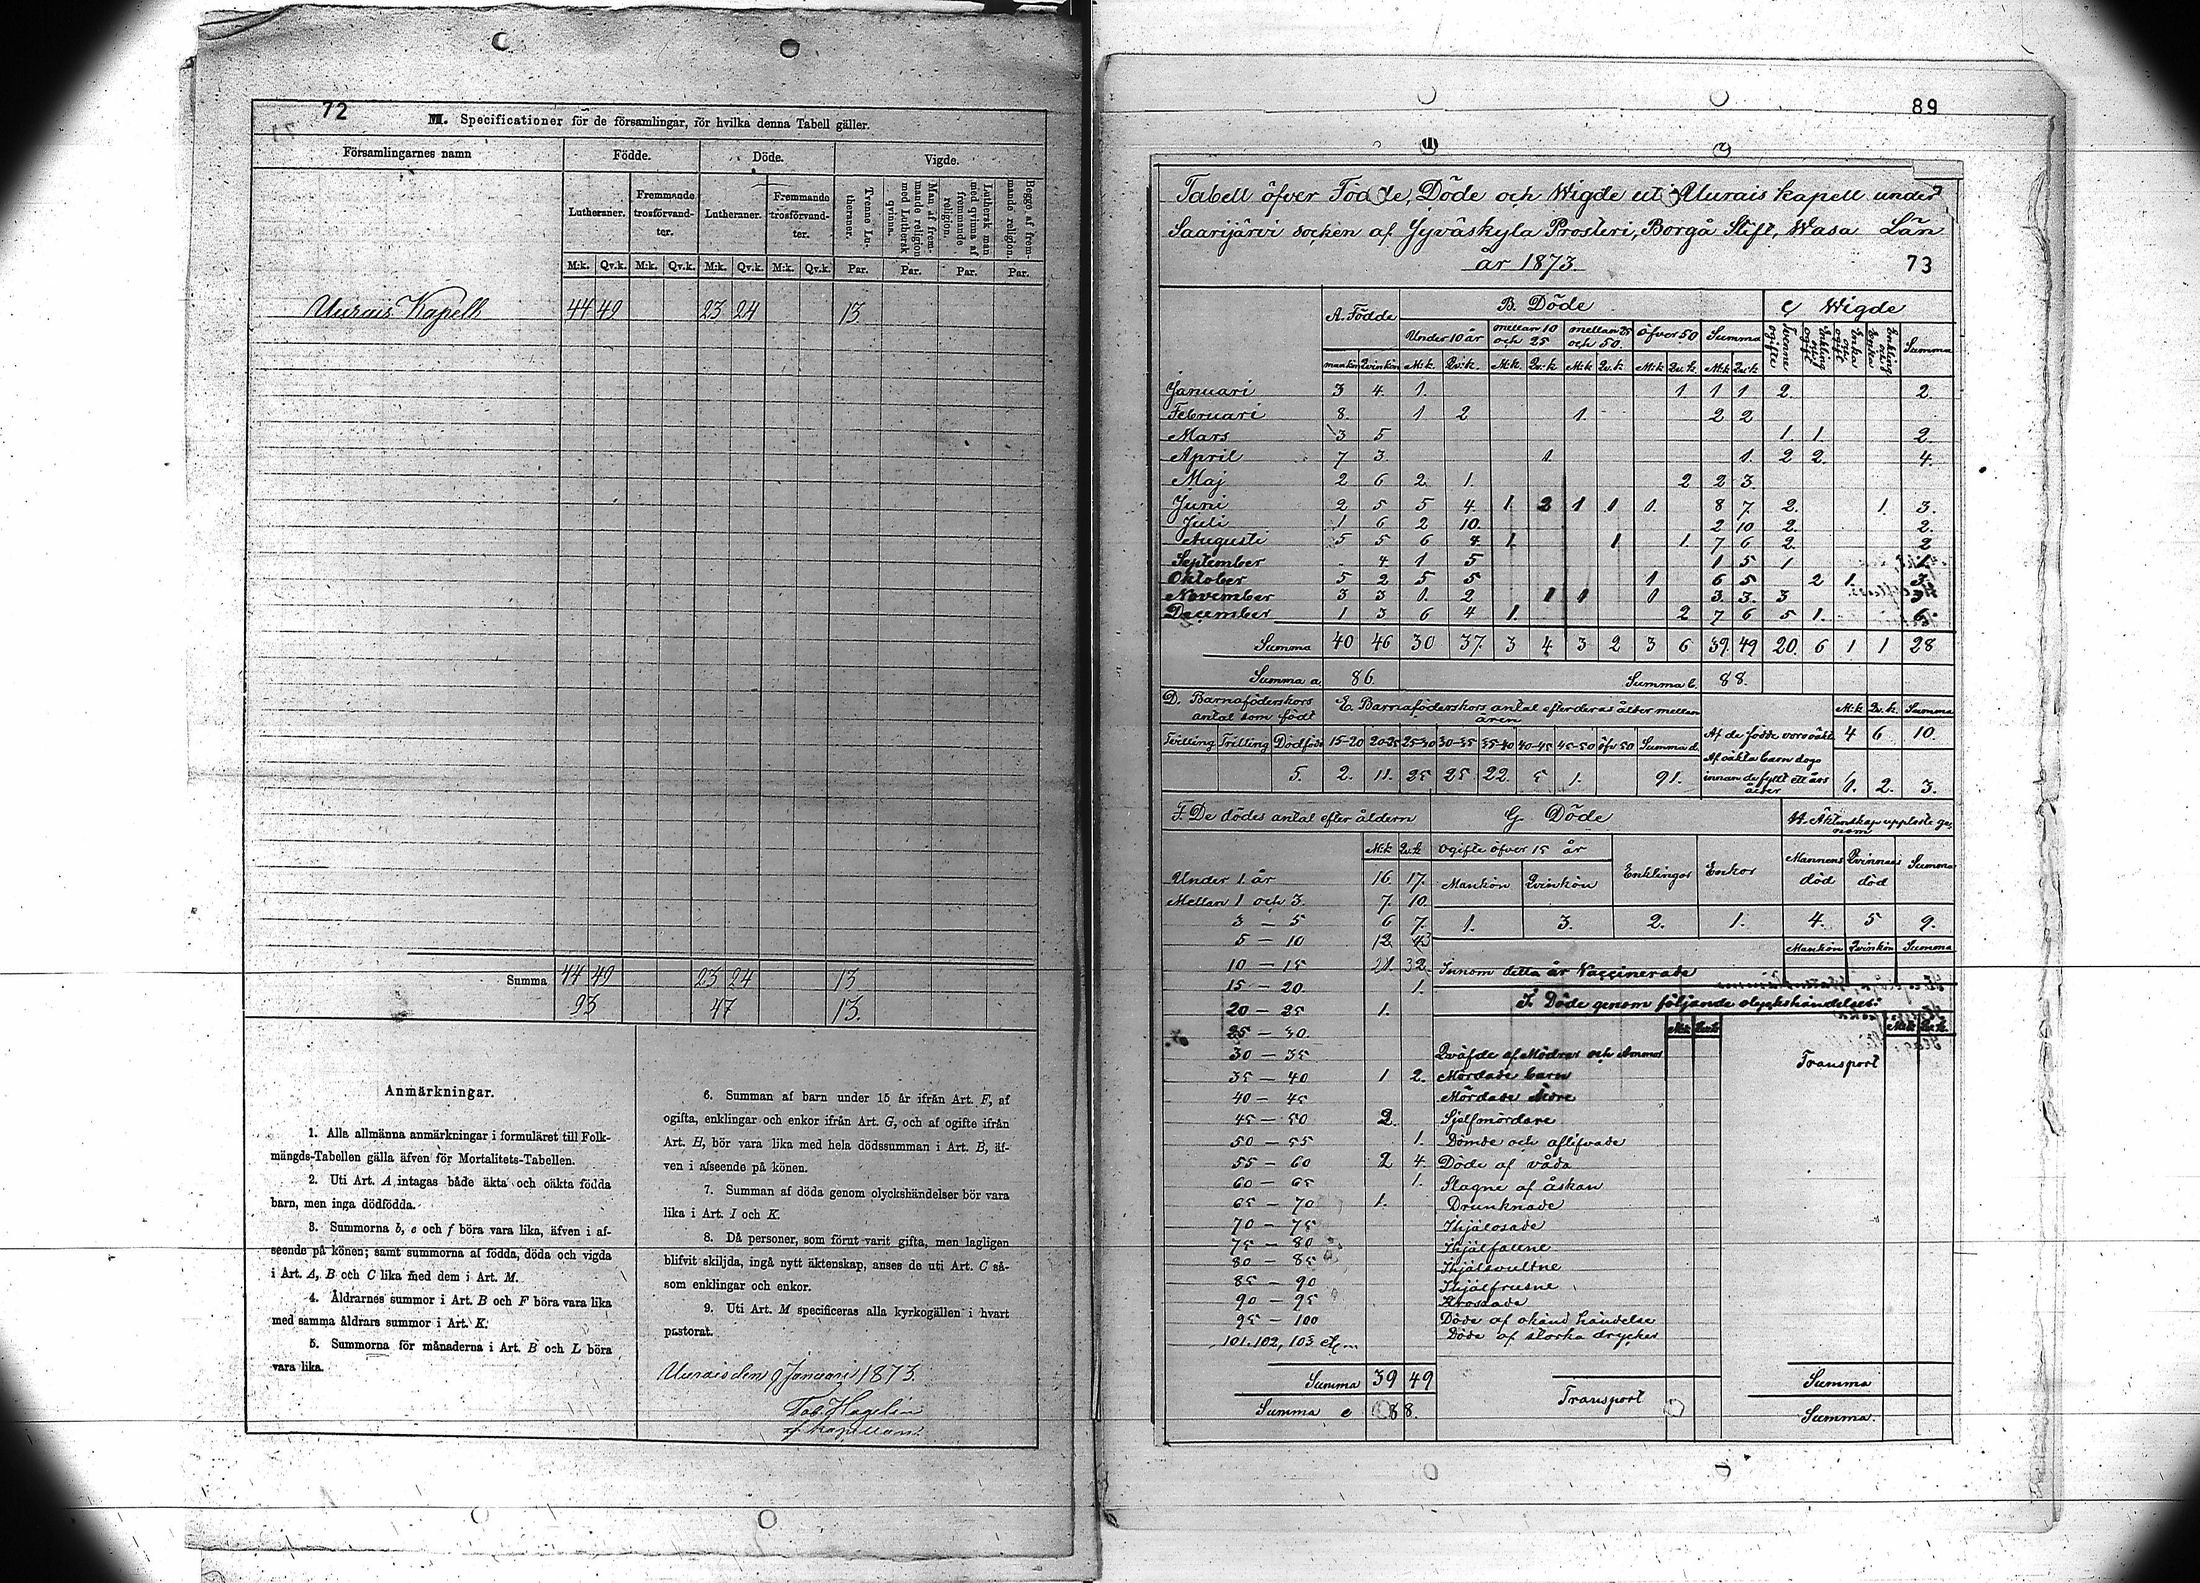 72
M. Specificationer för de församlingar, för hvilka denna Tabell gäller.
Församlingarnes namn Födde. Döde. Vigde.
Lutheraner. Fremmande trosförvand-ter. Lutheraner. Fremmande trosförvand-ter. Tvenne Lu-theraner. Man af frem-mande religion med Luthersk qvinna. Luthersk man med qvinna af fremmande religion. Begge af frem-mande religion.
M:k. Qv.k. M:k. Qv.k. M:k. Qv.k. M:k. Qv.k. Par. Par. Par. Par.
Uurais Kapell 44 49 23 24 13.
Summa 44 49 23 24 13
93 47 13.
Anmärkningar.
1. Alla allmänna anmärkningar i formuläret till Folk-
mängds-Tabellen gälla äfven för Mortalitets-Tabellen.
2. Uti Art. A intagas både äkta och oäkta födda
barn, men inga dödfödda.
3. Summorna b, e och f böra vara lika, äfven i af-
seende på könen; samt summorna af födda, döda och vigda
i Art. A, B och C lika med dem i Art. M.
4. Åldrarnes summor i Art. B och F böra vara lika
med samma åldrars summor i Art. K.
5. Summorna för månaderna i Art. B och L böra
vara lika.
6. Summan af barn under 15 år ifrån Art. F, af
ogifta, enklingar och enkor ifrån Art. G, och af ogifte ifrån
Art. H, bör vara lika med hela dödssumman i Art. B, äf-
ven i afseende på könen.
7. Summan af döda genom olyckshändelser bör vara
lika i Art. I och K.
8. Då personer, som förut varit gifta, men lagligen
blifvit skiljda, ingå nytt äktenskap, anses de uti Art. C så-
som enklingar och enkor.
9. Uti Art. M specificeras alla kyrkogällen i hvart
pastorat.
Uurais den 9 Januari 1873.
Tob. Hagelin
kapellan.
89
Tabell öfver Födde, Döde och Wigde ut Uurais kapell under
Saarijärvi socken af Jyväskyla Prosteri, Borgå Stift, Wasa Län
år 1873.
73
A. Födde B. Döde C Wigde
Under 10 år mellan 10 och 25 mellan 25 och 50. öfver 50 Summa Tvenne ogifte Enkling och ogift Enka och ogift Enkling och Enka Summa
mankön Qvinkön M:k Qv:k. M:k. Qv:k M:k Qv.k M:k Qv.k. M:k Qv:k
Januari 3 4. 1. 1 1 1 2. 2.
Februari 8. 1 2 1. 2 2
Mars 3 5 1. 1. 2.
April 7 3. 1. 1. 2 2. 4.
Maj 2 6 2. 1. 2 2 3.
Juni 2 5 5 4. 1. 2 1 1 1. 8 7 2. 1. 3.
Juli 1 6 2 10. 2 10 2. 2.
Augusti 5 5 6 4. 1. 1 1. 7 6 2. 2
September 4 1 5 1 5 1 1.
Oktober 5 2 5 5 1 6 5 2 1. 3.
November 3 3 1. 2 1 1 1 3. 3. 3 3
December 1 3 6 4 1. 2 7 6 5 1. 6.
Summa 40 46 30 37. 3 4 3 2 3 6 39. 49 20. 6 1 1 28
Summa a. 86. Summa b. 88.
D. Barnaföderskors antal som födt E. Barnaföderskors antal efter deras ålder mellan åren M:k Qv.k. Summa
Tvilling Trilling Dödföda 15-20 20-25 25-30 30-35 35-40 40-45 45-50 öfv 50 Summa d. Af de födde voro oäkta 4 6 10.
5. 2. 11. 25 25. 22. 5 1. 91. Af oäkta barn dogo innan de fyllt ett års ålder 1. 2. 3.
F. De dödes antal efter åldern G. Döde H. Äktenskap upplöste ge-nom
M:k Qv.k Ogifte öfver 15 år Enklingar Enkor Mannens död Qvinnans död Summa
Under 1 år 16. 17. Mankön Qvinkön
Mellan 1 och 3. 7. 10.
3 — 5 6 7. 1. 3. 2. 1. 4. 5 9.
5 — 10 12.
10 — 15 Mankön Qvinkön Summa
Innom detta år Vaccinerade
15 — 20. 1.
20 — 25 1. I. Döde genom följande olyckshändelser:
25 — 30. M:k Qv:k M:k Qv.k.
30 — 35 Qväfde af Mödrar och Ammor Transport
35 — 40 1 2. Mördade barn
40 — 45 Mördade äldre
45 — 50 2. Sjelfmördare
50 — 55 1. Dömde och aflifvade
55 — 60 2 4. Döde af våda
60 — 65 1. Slagne af åskan
65 — 70 1. Drunknade
70 — 75 Ihjälosade
75 — 80 Ihjälfallne
80 — 85 Ihjälsvultne
85 — 90 Ihjälfrusne
90 — 95 Krossade
95 — 100 Döde af okänd händelse
101. 102, 103 etc. Döde af starka drycker
Summa 39 49 Transport Summa
Summa e 88. Summa.